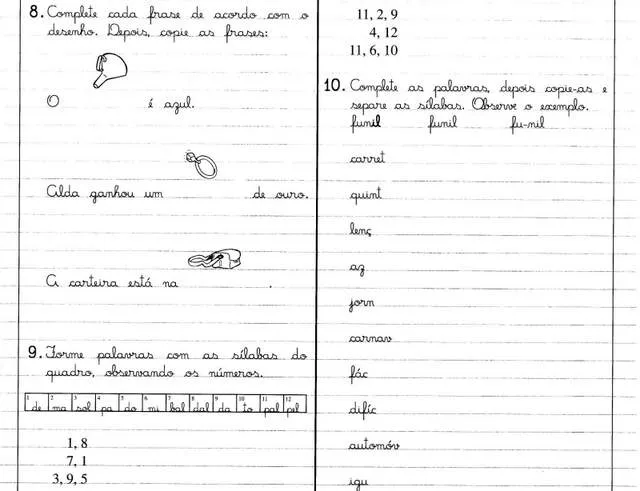 8. Complete cada frase de acordo com o
desenho. Depois, copie as frases:
O é azul.
Alda ganhou um de ouro.
A carteira está na .
9. Forme palavras com as sílabas do
quadro, observando os números.
1 2 3 4 5 6 7 8 9 10 11 12
de ma sol pa do mi bal dal da to pal pel
1, 8
7, 1
3, 9, 5
11, 2, 9
4, 12
11, 6, 10
10. Complete as palavras, depois copie-as e
separe as sílabas. Observe o exemplo.
funil funil fu-nil
carret
quint
lenç
az
jorn
carnav
fác
difíc
automóv
igu